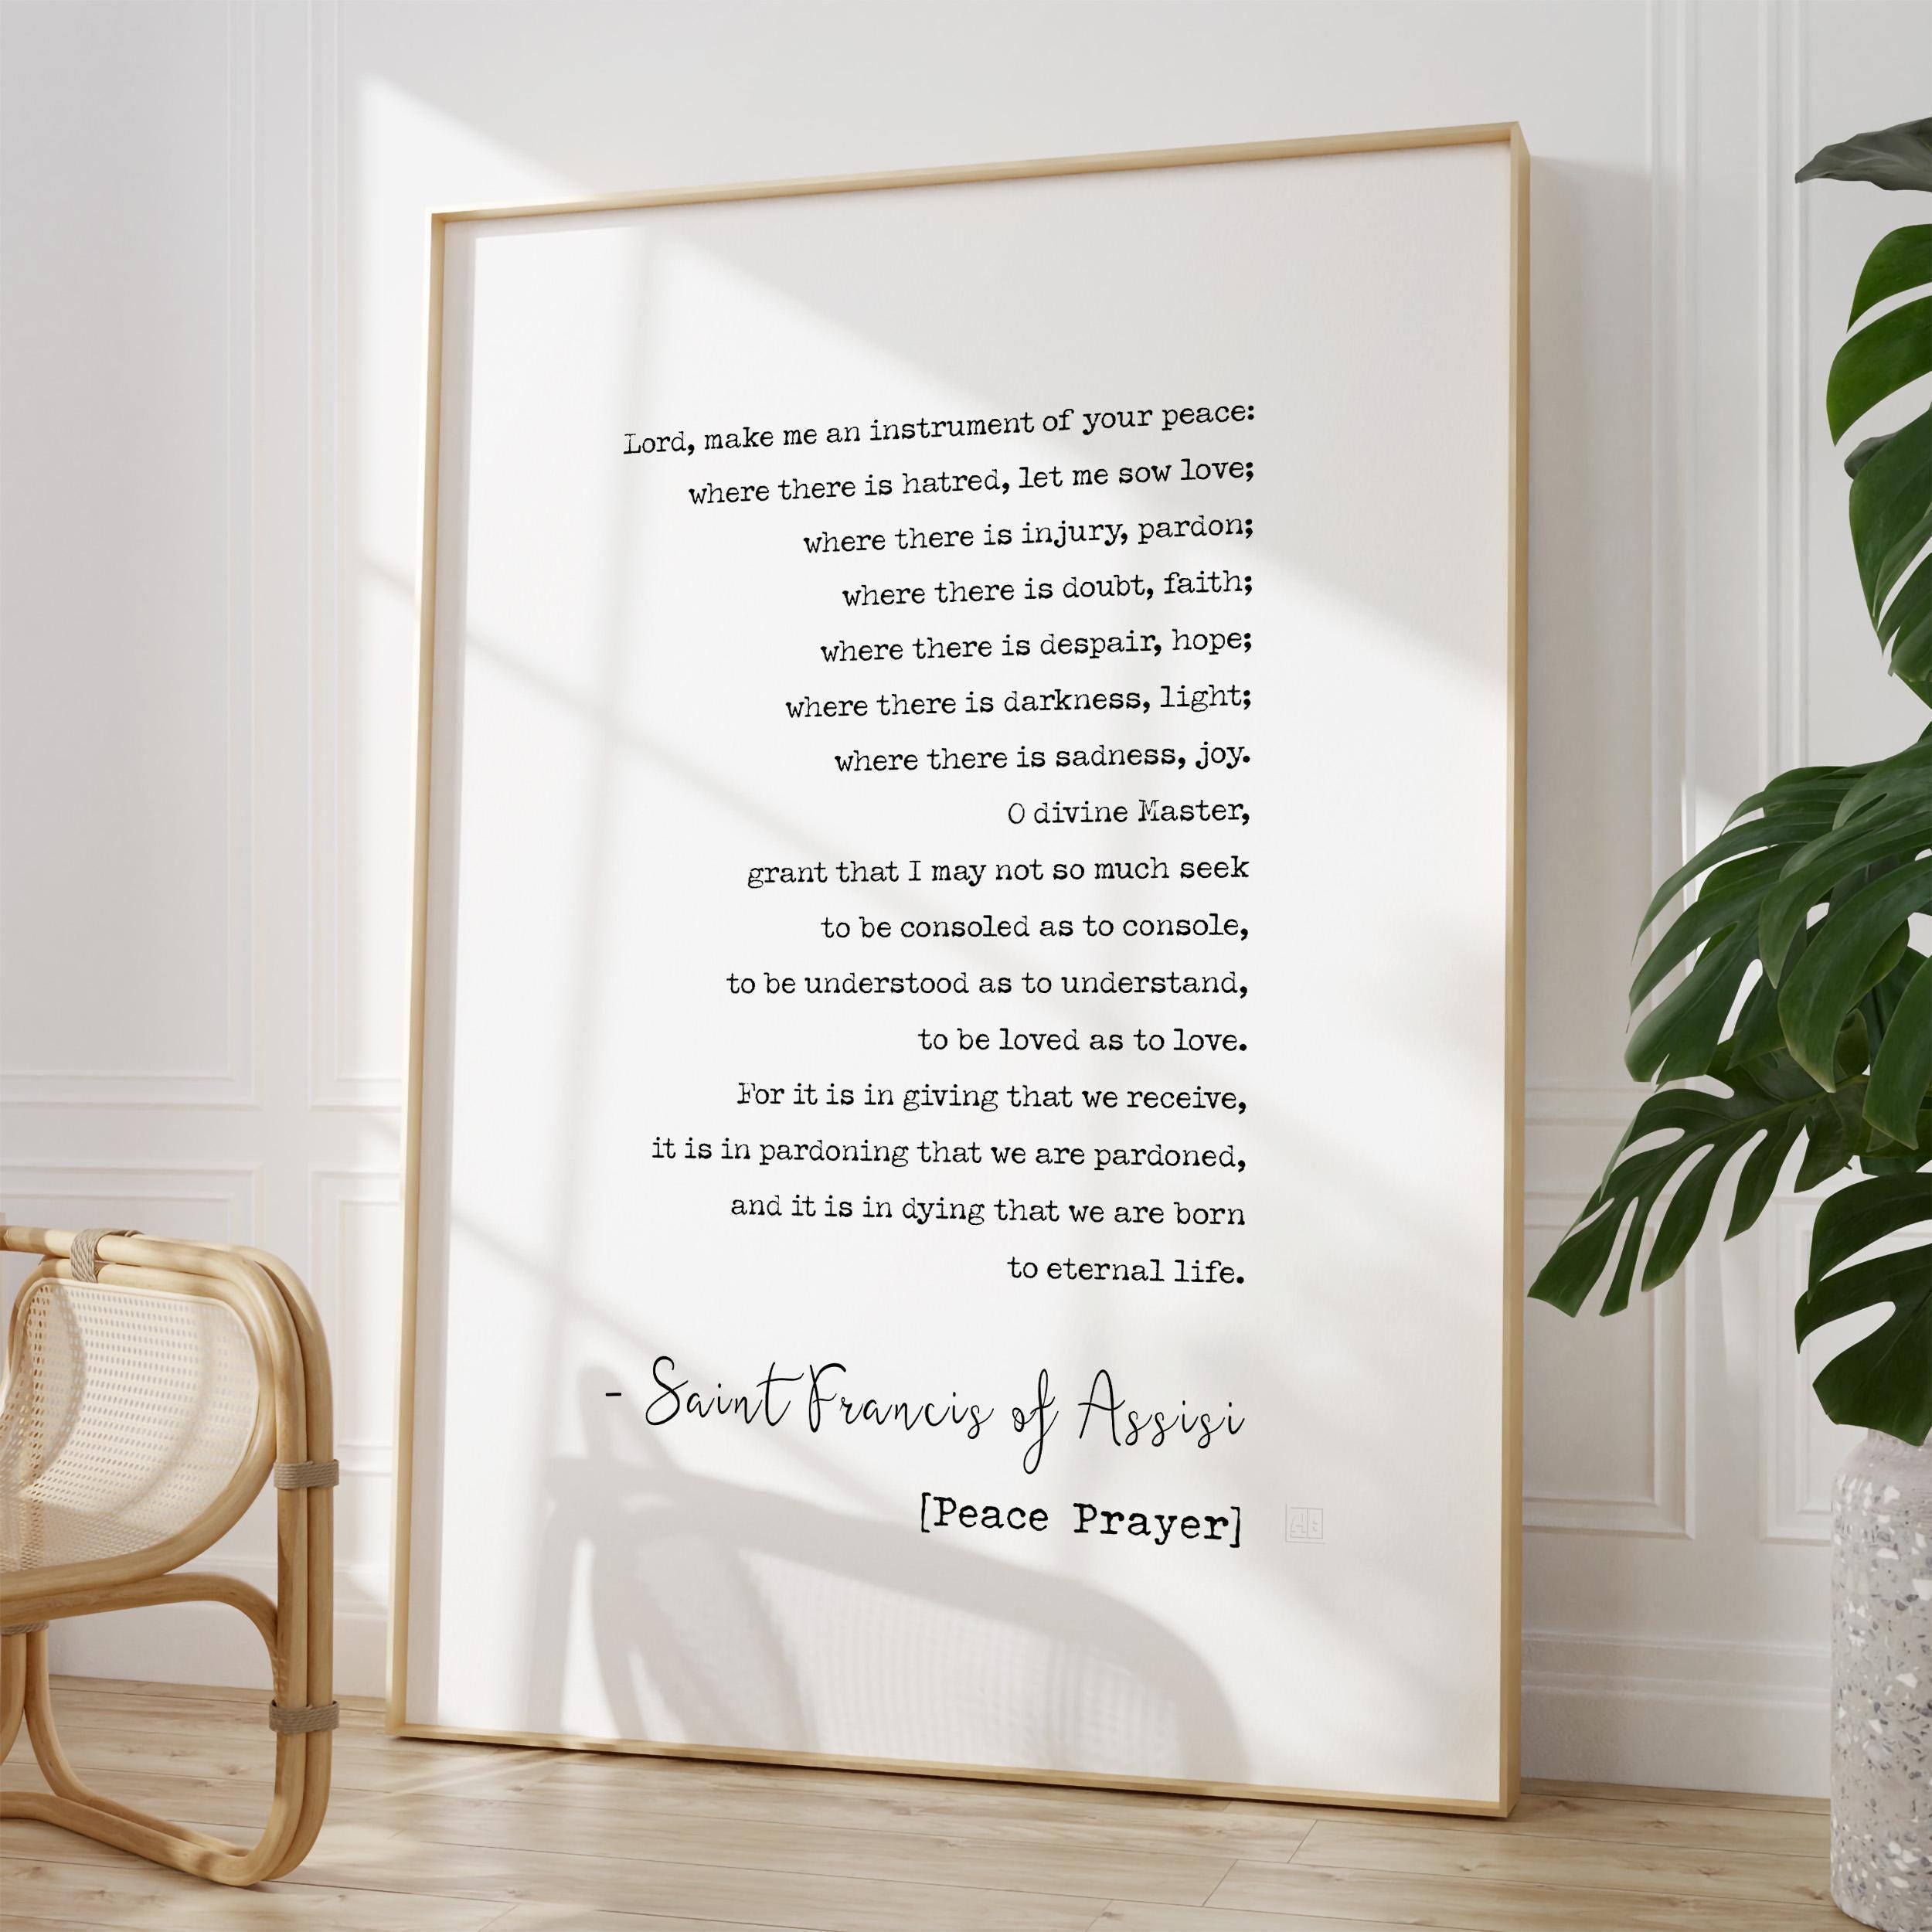 Lord, make me an instrument of your peace:
where there is hatred, let me sow love;
where there is injury, pardon;
where there is doubt, faith;
where there is despair, hope;
where there is darkness, light;
where there is sadness, joy.
O divine Master,
grant that I may not so much seek
to be consoled as to console,
to be understood as to understand,
to be loved as to love.
For it is in giving that we receive,
it is in pardoning that we are pardoned,
and it is in dying that we are born
to eternal life.
- Saint Francis of Assisi
[Peace Prayer]